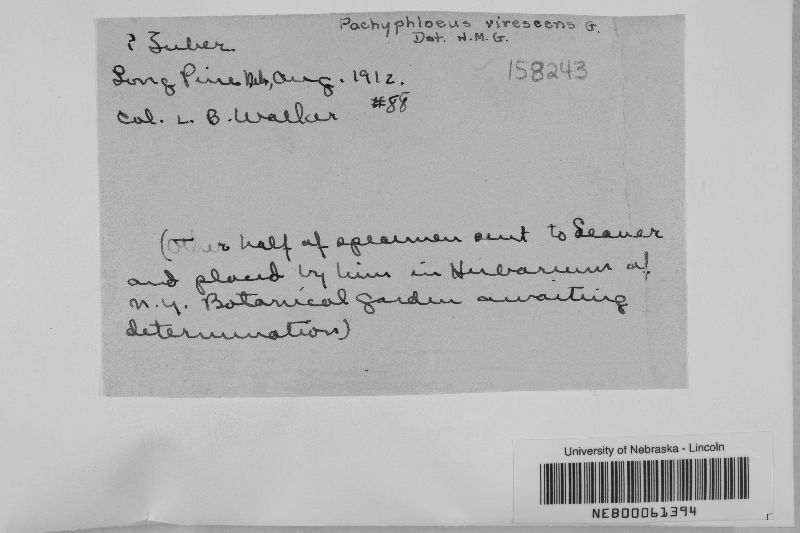 Pachyphloeus virescens G.
Det. H.M.G.
? Tuber.
158243
Long Pine Neb, Aug. 1912.
#88
Col. L. B. Walker
(Other half of specimen sent to Seaver
and placed by him in Herbarium of
N.Y. Botanical Garden awaiting
determination)
University of Nebraska - Lincoln
NEB00061394